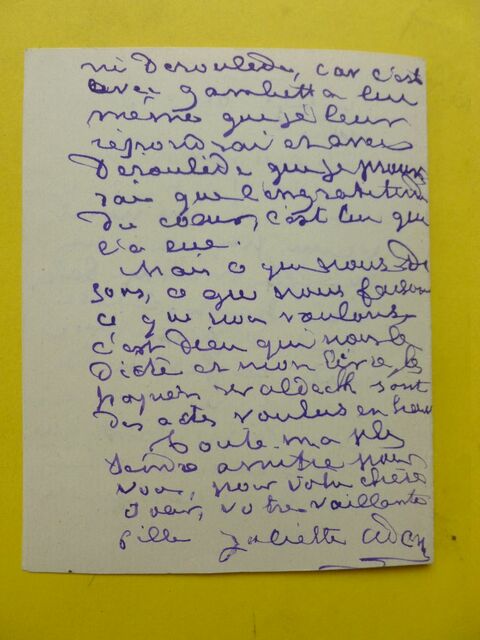 ni Déroulède, car c'est
avec Gambetta lui
même que je leur
répondrai et avec
Déroulède que je prouve
rai que l'ingratitude
du cœur, c'est lui qui
l'a eue.
Mais ce que nous di
sons, ce que nous faisons
ce que nous voulons
c'est Dieu qui nous le
dicte et mon livre, les
papiers Waldeck sont
des actes voulus en haut
Toute ma plus
tendre amitié pour
vous, pour votre chère
sœur, votre vaillante
fille Juliette Adam